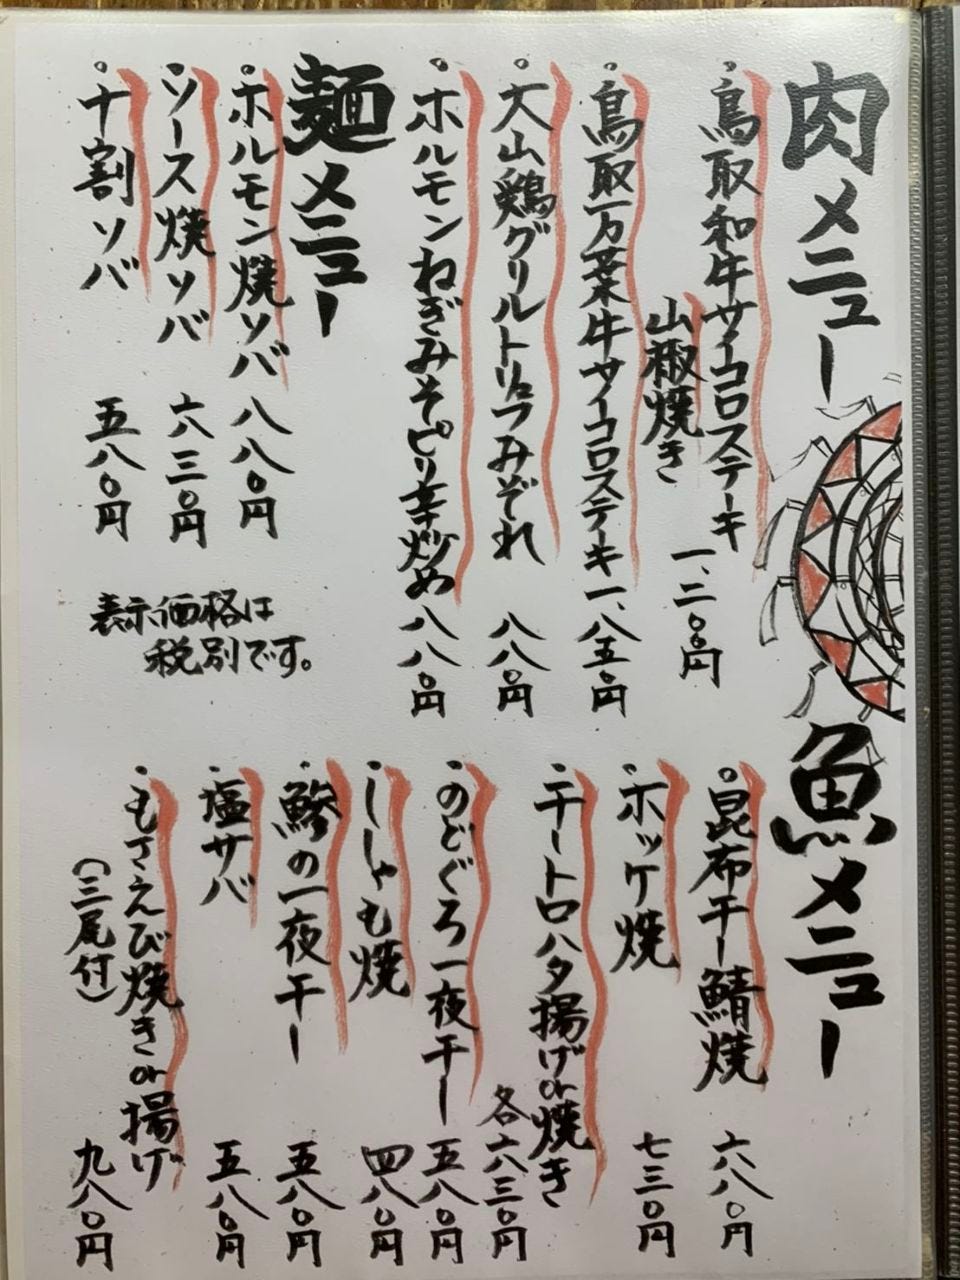 肉メニュー
・鳥取和牛サイコロステーキ
山椒焼き 一、二〇〇円
・鳥取万葉牛サイコロステーキ 一、八五〇円
・大山鶏グリルトリュフみぞれ 八八〇円
・ホルモンねぎみそピリ辛炒め 八八〇円
麺メニュー
・ホルモン焼ソバ 八八〇円
・ソース焼ソバ 六三〇円
・十割ソバ 五八〇円
表示価格は
税別です。
魚メニュー
・昆布干し鯖焼 六八〇円
・ホッケ焼 七三〇円
・干しトロハタ揚げor焼き
各六三〇円
・のどぐろ一夜干し 五八〇円
・ししゃも焼 四八〇円
・鯵の一夜干し 五八〇円
・塩サバ 五八〇円
・もさえび焼きor揚げ
(三尾付) 九八〇円